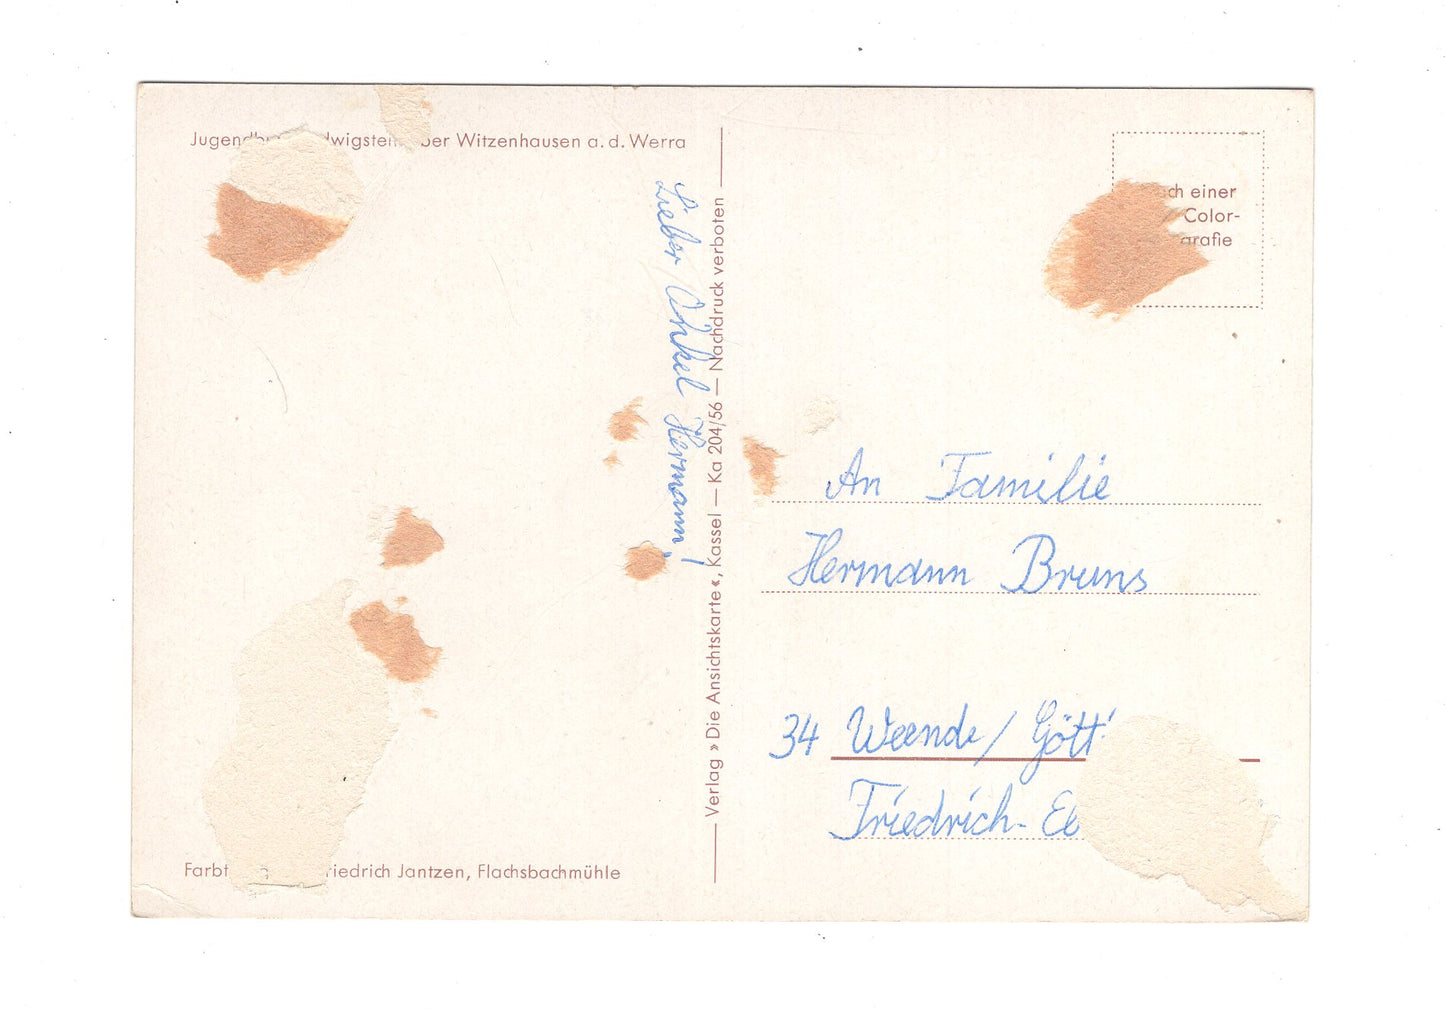 über Witzenhausen a. d. Werra
Lieber Onkel Hermann!
Verlag » Die Ansichtskarte «, Kassel — Ka 204/56 — Nachdruck verboten
einer
Color-
An Familie
Hermann Bruns
34 Weende/
Friedrich-
Jantzen, Flachsbachmühle